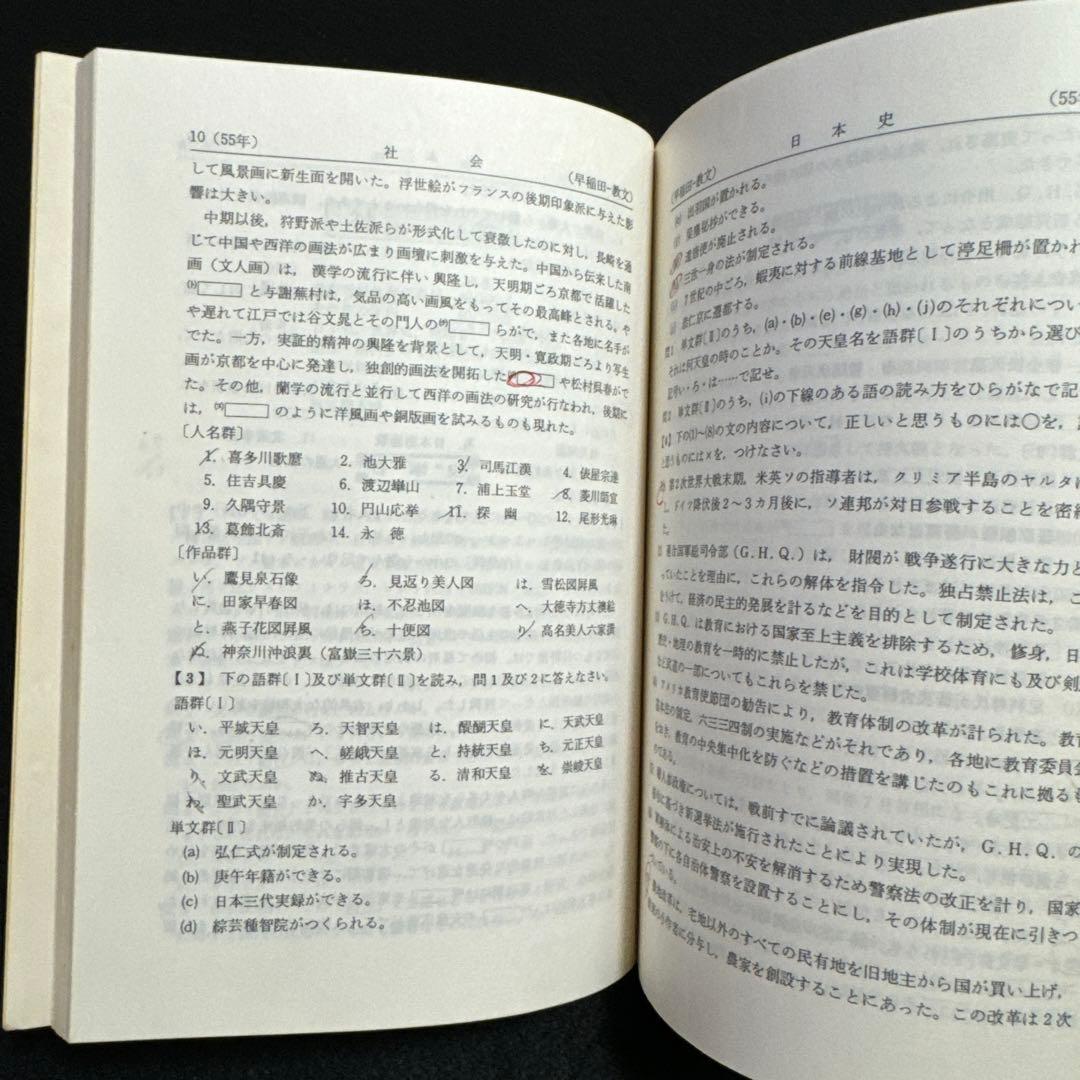 10（55年）
社　会
（早稲田-教文）
して風景画に新生面を開いた。浮世絵がフランスの後期印象派に与えた影
響は大きい。
中期以後，狩野派や土佐派らが形式化して衰微したのに対し，長崎を通
じて中国や西洋の画法が広まり画壇に刺激を与えた。中国から伝来した南
画（文人画）は，漢学の流行に伴い興隆し，天明期ごろ京都で活躍した
と与謝蕪村は，気品の高い画風をもってその最高峰とされる。や
や遅れて江戸では谷文晁とその門人の　　らがで，また各地に名手が
でた。一方，実証的精神の興隆を背景として，天明・寛政期ごろより写生
画が京都を中心に発達し，独創的画法を開拓した　　や松村呉春がで
た。その他，蘭学の流行と並行して西洋の画法の研究が行なわれ，後期に
は，　　のように洋風画や銅版画を試みるものも現れた。
〔人名群〕
1. 喜多川歌麿　2. 池大雅　3. 司馬江漢　4. 俵屋宗達
5. 住吉具慶　6. 渡辺崋山　7. 浦上玉堂　8. 菱川師宣
9. 久隅守景　10. 円山応挙　11. 探　幽　12. 尾形光琳
13. 葛飾北斎　14. 永　徳
〔作品群〕
い．鷹見泉石像　ろ．見返り美人図　は．雪松図屏風
に．田家早春図　ほ．不忍池図　へ．大徳寺方丈襖絵
と．燕子花図屏風　ち．十便図　り．高名美人六家撰
ぬ．神奈川沖浪裏（富嶽三十六景）
【3】　下の語群〔Ⅰ〕及び単文群〔Ⅱ〕を読み，問1及び2に答えなさい。
語群〔Ⅰ〕
い．平城天皇　ろ．天智天皇　は．醍醐天皇　に．天武天皇
ほ．元明天皇　へ．嵯峨天皇　と．持統天皇　ち．元正天皇
り．文武天皇　ぬ．推古天皇　る．清和天皇　を．崇峻天皇
わ．聖武天皇　か．宇多天皇
単文群〔Ⅱ〕
(a)　弘仁式が制定される。
(b)　庚午年籍ができる。
(c)　日本三代実録ができる。
(d)　綜芸種智院がつくられる。
（早稲田-教文）
日　本　史
（55
出羽国が置かれる。
薬療秘抄ができる。
遣唐使が廃止される。
三世一身の法が制定される。
7世紀の中ごろ，蝦夷に対する前線基地として渟足柵が置かれ
恭仁京に遷都する。
単文群〔Ⅱ〕のうち，(a)・(b)・(e)・(g)・(h)・(j)のそれぞれについ
それは何天皇の時のことか。その天皇名を語群〔Ⅰ〕のうちから選び
記号い・ろ・は……で記せ。
単文群〔Ⅱ〕のうち，(i)の下線のある語の読み方をひらがなで記
【4】下の(1)～(8)の文の内容について，正しいと思うものには○を，
と思うものには×を，つけなさい。
第2次世界大戦末期，米英ソの指導者は，クリミア半島のヤルタ
し，ドイツ降伏後2～3カ月後に，ソ連邦が対日参戦することを密
連合国軍総司令部（G.H.Q.）は，財閥が戦争遂行に大きな力と
っていたことを理由に，これらの解体を指令した。独占禁止法は，こ
をうけて，経済の民主的発展を計るなどを目的として制定された。
G.H.Q.は教育における国家至上主義を排除するため，修身，日
史・地理の教育を一時的に禁止したが，これは学校体育にも及び剣
など武道の一部についてもこれらを禁じた。
アメリカ教育使節団の勧告により，教育体制の改革が計られた。教
基本法の制定，六三三四制の実施などがそれであり，各地に教育委員会
をおき，教育の中央集中化を防ぐなどの措置を講じたのもこれに拠るも
のである。
婦人参政権については，戦前すでに論議されていたが，G.H.Q.の
に基づき新選挙法が施行されたことにより実現した。
による治安上の不安を解消するため警察法の改正を計り，国家
の下に各自治体警察を設置することにし，その体制が現在に引きつ
農地改革は，宅地以外のすべての民有地を旧地主から国が買い上げ，
の小作者に分与し，農家を創設することにあった。この改革は2次